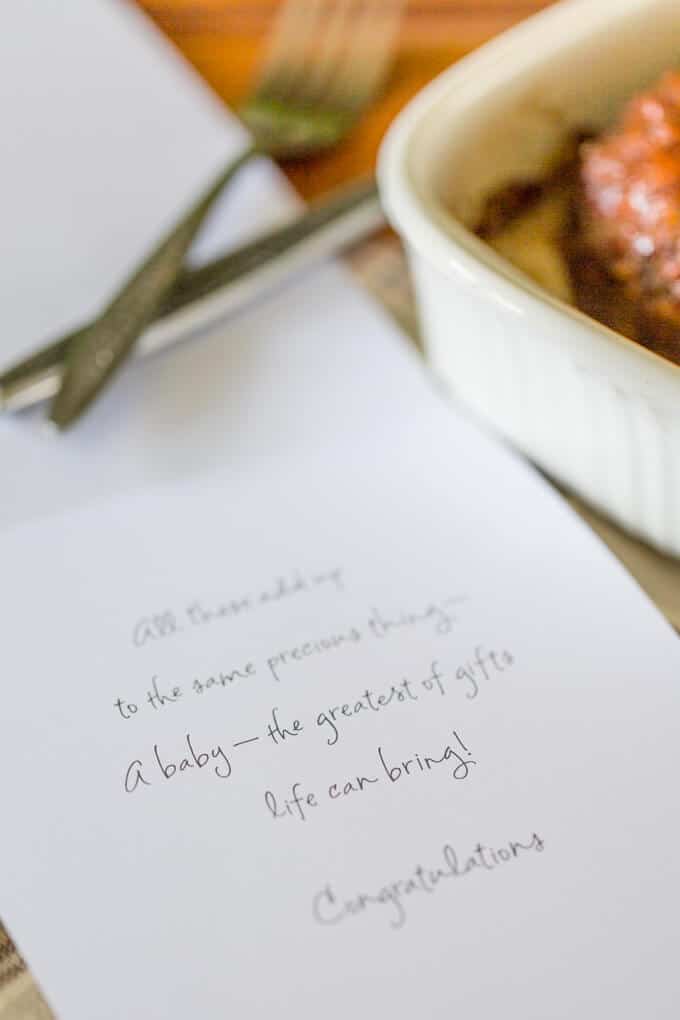 All these add up
to the same precious thing—
A baby—the greatest of gifts
life can bring!
Congratulations